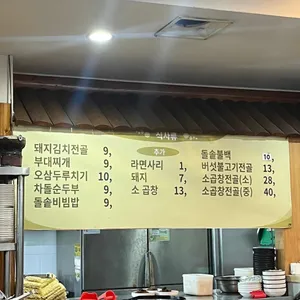 식사류
돼지김치전골 9,
부대찌개 9,
오삼두루치기 10,
차돌순두부 9,
돌솥비빔밥 9,
추가
라면사리 1,
돼지 7,
소 곱창 13,
돌솥불백 10,
버섯불고기전골 13,
소곱창전골(소) 28,
소곱창전골(중) 40,